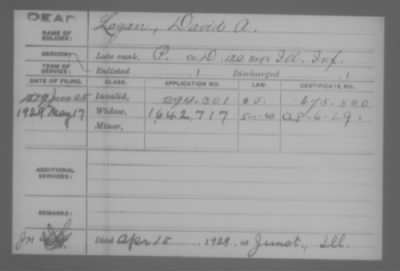 DEAF
NAME OF SOLDIER: Logan, David A.
SERVICE: Late rank, P. Co. D, 120 Reg't Ill. Inf.
TERM OF SERVICE: Enlisted , 1 Discharged , 1
DATE OF FILING. CLASS. APPLICATION NO. LAW. CERTIFICATE NO.
1879 June 25 Invalid, 294.301 O.J. 675.590
1929 May 17 Widow, 1642717 O.S-6-29.
Minor,
ADDITIONAL SERVICES:
REMARKS:
Died Apr 15, 1929, at Ill.